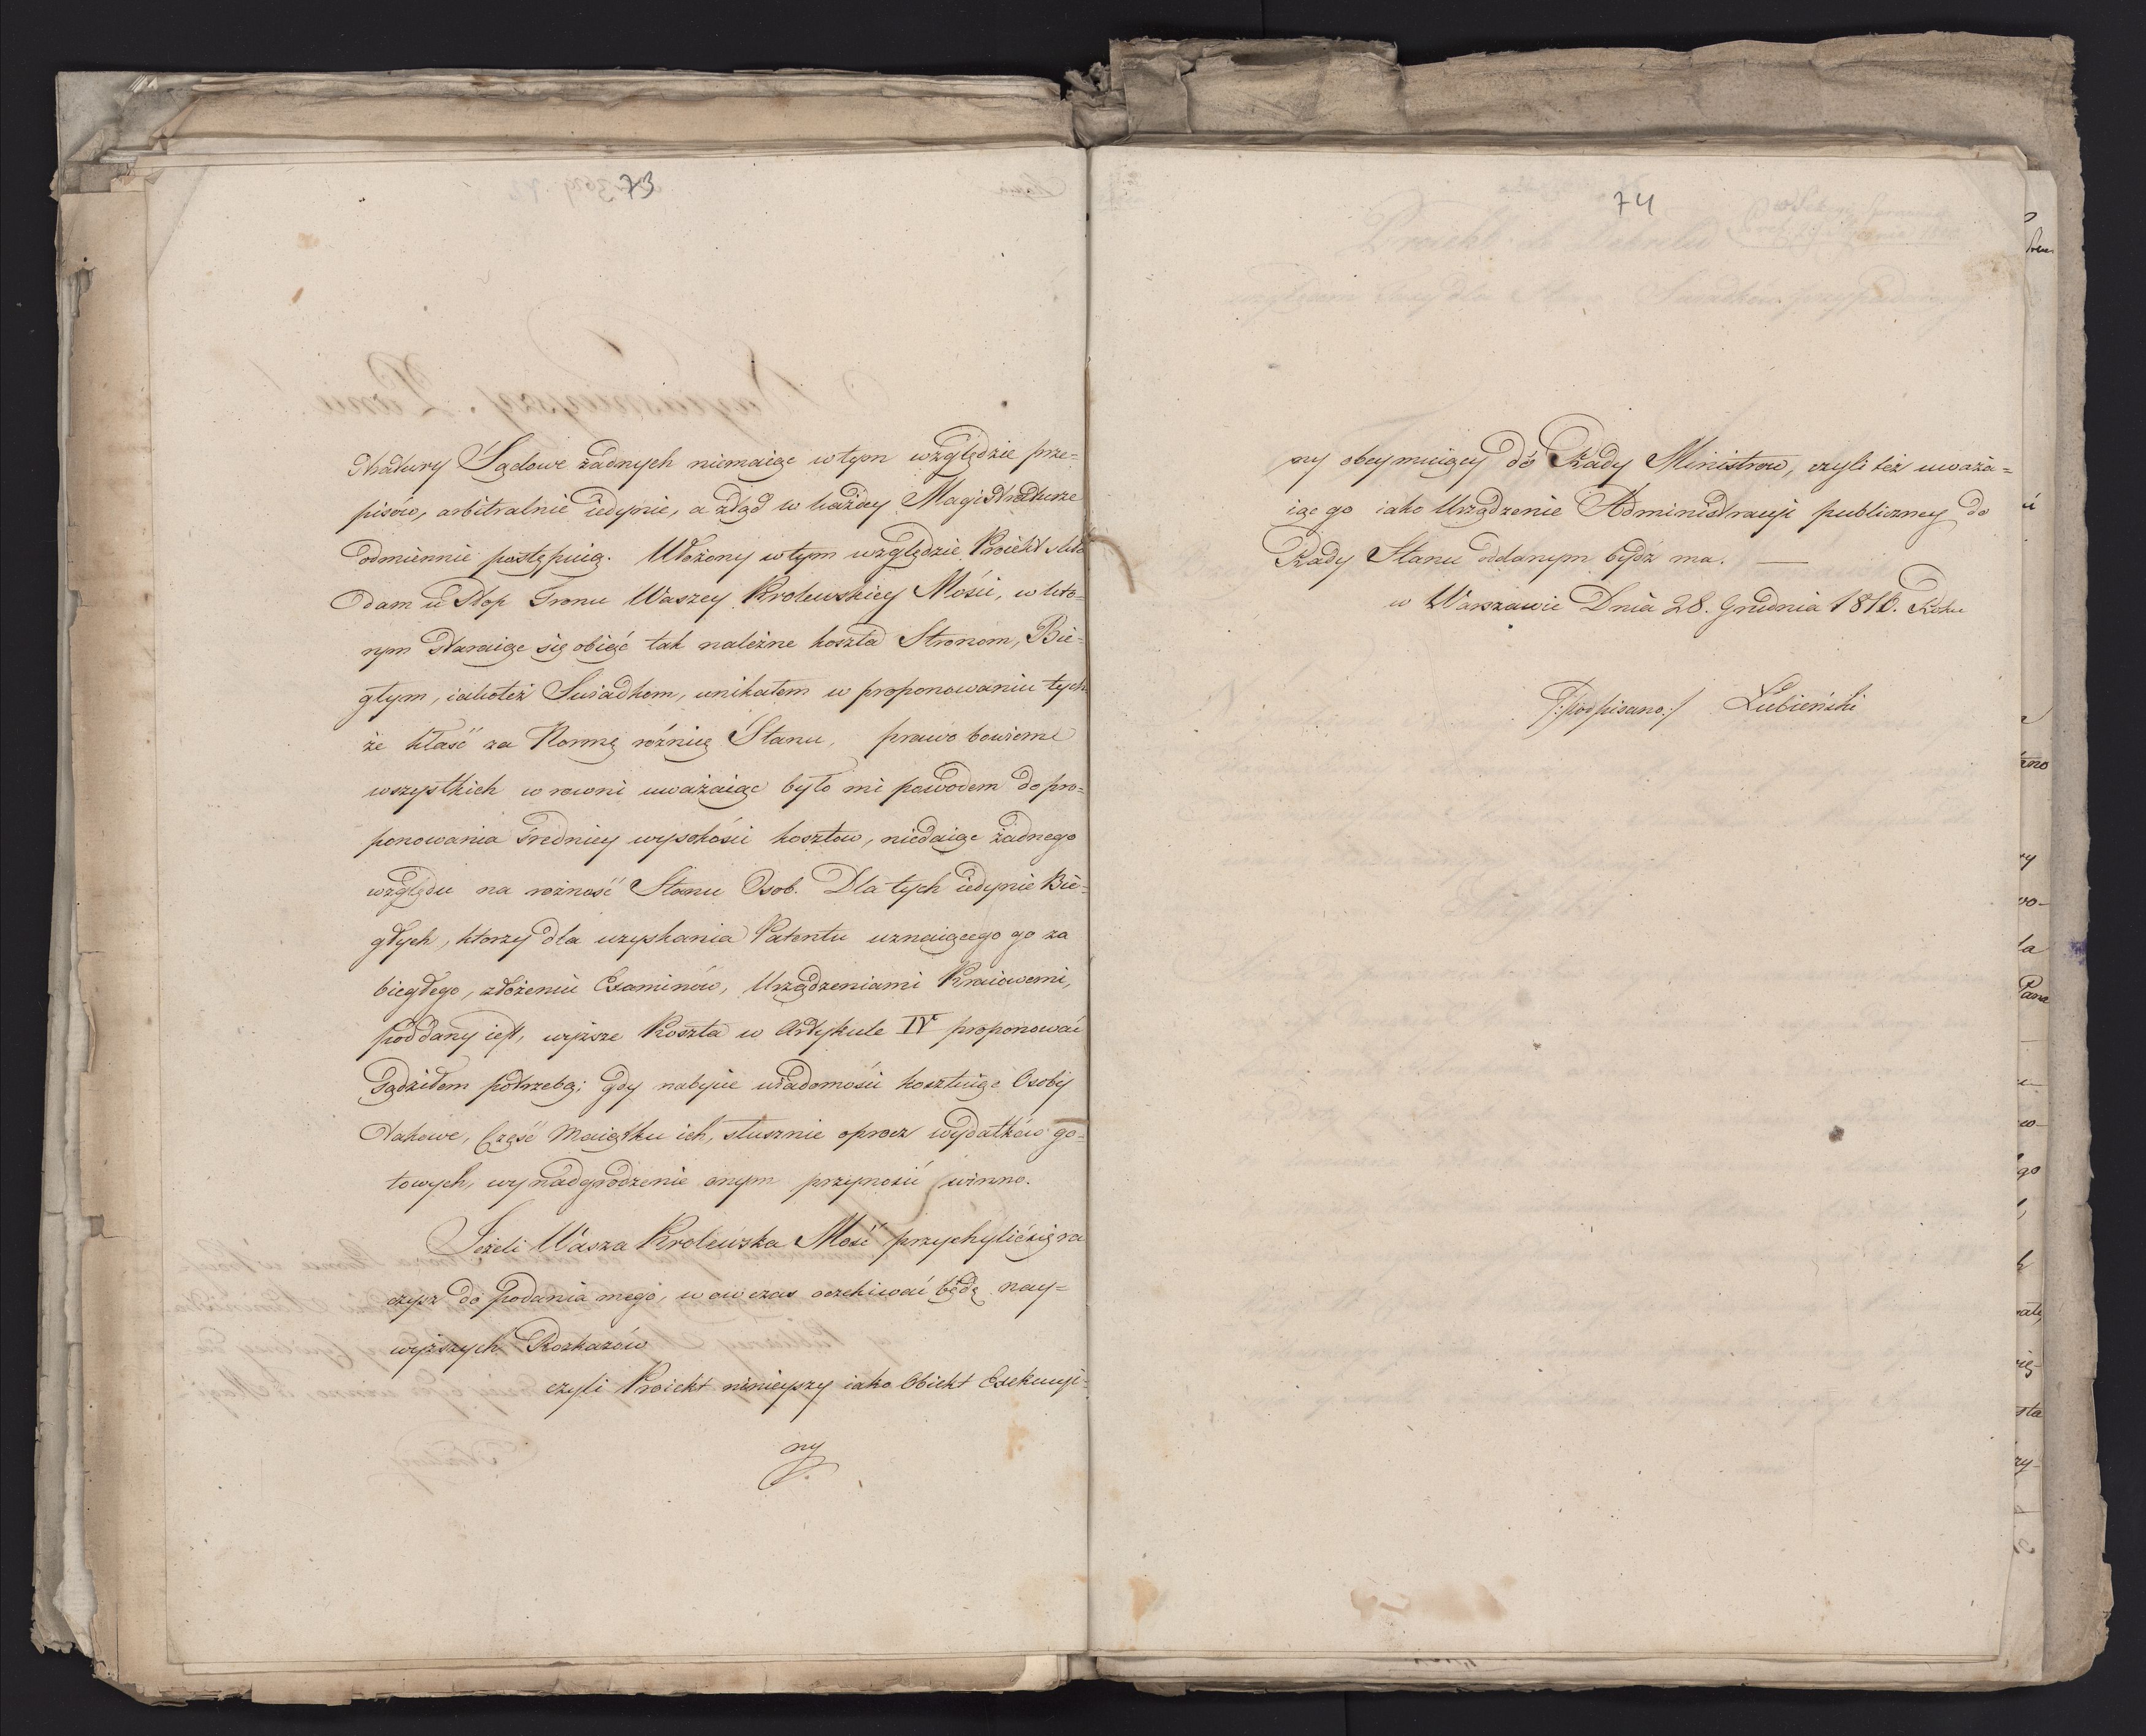 73
stratury Sądowe żadnych niemaiąc w tym względzie prze=
pisów, arbitralnie iedynie, a ztąd w każdey Magistraturze
odmiennie postępuią. Ułożony w tym względzie Proiekt skła
dam u Stop Tronu Waszey Krolewskiey Mości, w któ=
rym staraiąc się obiąć tak należne koszta Stronom, Bie=
głym, iakoteż Swiadkom, unikałem w proponowaniu tych
że kłaść za Normę różnię Stanu, prawo bowiem
wszystkich w rowni uważaiąc było mi powodem do pro=
ponowania średniey wysokości kosztow, niedaiąc żadnego
względu na rożność Stanu Osob. Dla tych iedynie Bie=
głych, ktorzy dla uzyskania Patentu uznaiącego go za
biegłego, złożeniu Examinów, Urządzeniami Kraiowemi,
poddany iest, wyższe Koszta w Artykule IV proponować
sądziłem potrzebą; gdy nabycie wiadomości kosztuiąc Osoby
takowe, część Maiątku ich, słusznie oprocz wydatków go=
towych, wynadgrodzenie onym przynosić winno.
Jeżeli Wasza Krolewska Mość przychylić się ra
czysz do podania mego, w ow czas oczekiwać będę nay=
wyższych Rozkazów
czyli Proiekt ninieyszy iako Obiekt Exekucyi=
ny
74
ny obeymuiący do Rady Ministrow, czyli też uważa=
iąc go iako Urządzenie Administracyi publiczney do
Rady Stanu oddanym bydź ma. —
w Warszawie Dnia 28. Grudnia 1810. Roku
/:podpisano:/ Łubieński